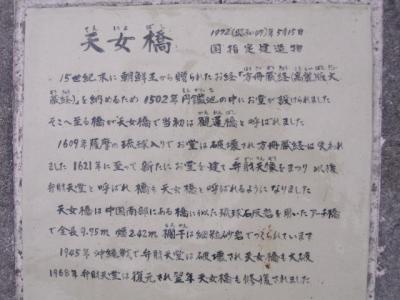 天女橋
1972(昭和47)年5月15日
国指定建造物
15世紀末に朝鮮王から贈られたお経「方冊蔵経(高麗版大
蔵経)」を納めるため1502年円鑑池の中にお堂が設けられました
そこへ至る橋が天女橋で当初は観蓮橋と呼ばれました
1609年薩摩の琉球入りでお堂は破壊され方冊蔵経は失われ
ました1621年に至って新たにお堂を建て弁財天像をまつり以後
弁財天堂と呼ばれ橋も天女橋と呼ばれるようになりました
天女橋は中国南部にある橋に似た琉球石灰岩を用いたアーチ橋
で全長9.75m幅2.42m欄干は細粒砂岩でつくられています
1945年沖縄戦で弁財天堂は破壊され天女橋も大破
1968年弁財天堂は復元され翌年天女橋も修復されました